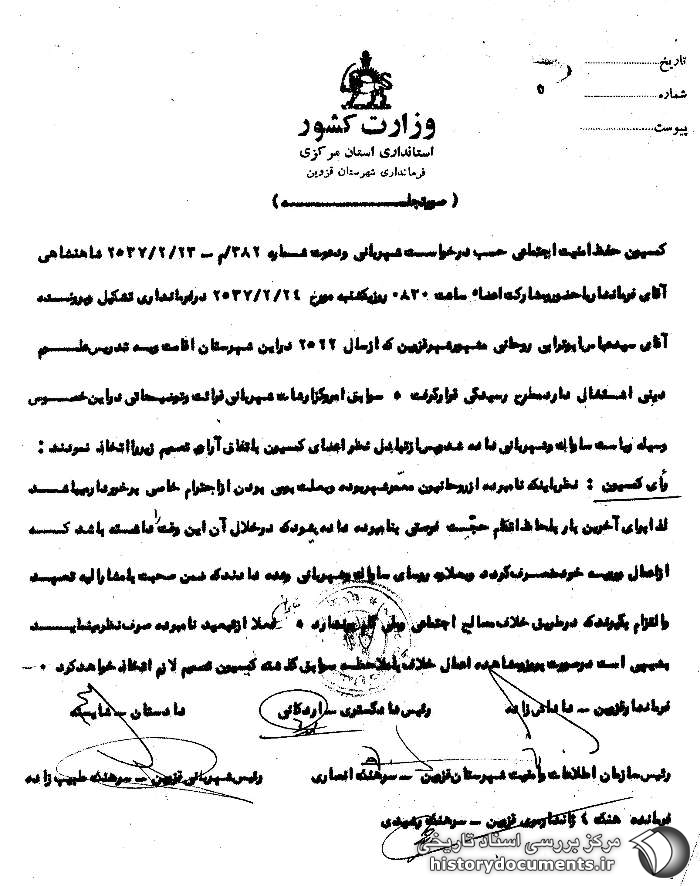 تاریخ
شماره
پیوست
وزارت کشور
استانداری استان مرکزی
فرمانداری شهرستان قزوین
(صورتجلسه)
کمیسیون حفظ امنیت اجتماعی حسب درخواست شهربانی ودعوت شماره ۳۸۲/م – ۲۵۳۷/۲/۲۳ شاهنشاهی
آقای فرماندار با حضور و مشارکت اعضاء ساعت ۰۸۳۰ روز یکشنبه مورخ ۲۵۳۷/۲/۲۴ در فرمانداری تشکیل و پرونده
آقای سیدعباس ابوترابی روحانی مشهور شهر قزوین که از سال ۲۵۲۲ در این شهرستان اقامت و به تدریس علوم
دینی اشتغال دارد مطرح رسیدگی قرار گرفت • سوابق امر و گزارشات شهربانی قرائت و توضیحاتی در این خصوص
وسیله ریاست ساواک و شهربانی داده شد و پس از تبادل نظر اعضای کمیسیون باتفاق آراء تصمیم زیر را اتخاذ نمودند :
رأی کمیسیون : نظر باینکه نامبرده از روحانیون معمر شهر بوده و بعلت بومی بودن از احترام خاصی برخوردار میباشد
لذا برای آخرین بار بلحاظ اتمام حجّت فرصتی بنامبرده داده بشود که در خلال آن این وقت را داشته باشد کسه
از اعمال و رویه خود منصرف گردد و بعلاوه روسای ساواک و شهربانی وعده دادند که ضمن صحبت با مشارالیه تعهد
و التزام بگیرند که در طریق خلاف مصالح اجتماعی گام برندارد • فعلا از تبعید نامبرده صرف نظر مینماید
بدیهی است در صورت بروز و مشاهده اعمال خلاف با ملاحظه سوابق گذشته کمیسیون تصمیم لازم اتخاذ خواهد کرد •
فرماندار قزوین – داداش زاده رئیس دادگستری – اردکانی دادستان – شایسته
رئیس سازمان اطلاعات و امنیت شهرستان قزوین – سرهنگ انصاری رئیس شهربانی قزوین – سرهنگ طبیب زاده
فرمانده هنگ ٤ ژاندارمری قزوین – سرهنگ رشیدی
مرکز بررسی اسناد تاریخی
historydocuments.ir